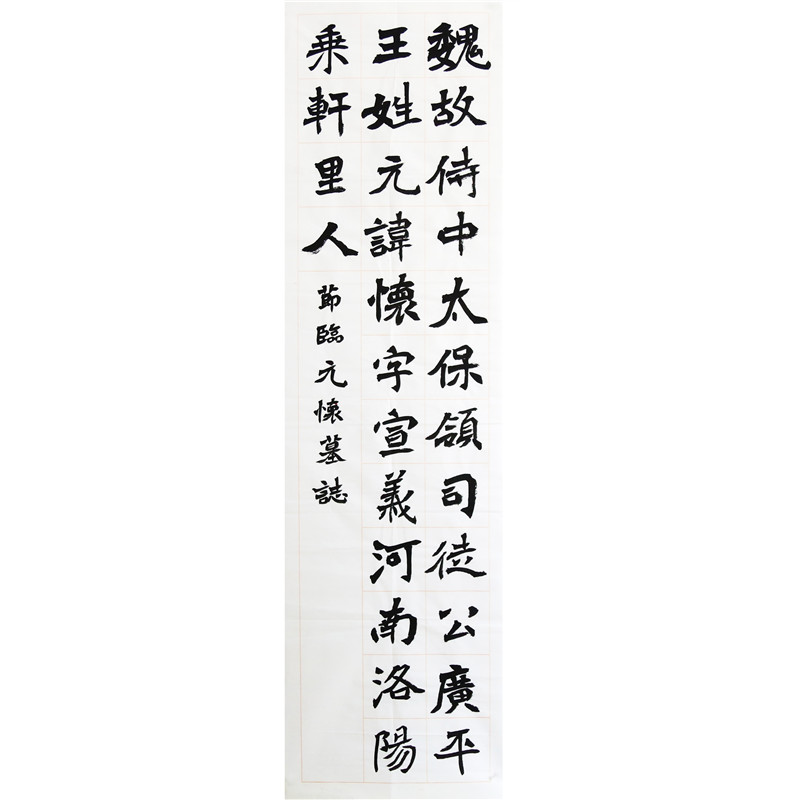 魏故侍中太保領司徒公廣平
王姓元諱懷字宣義河南洛陽
乘軒里人
節臨元懷墓誌